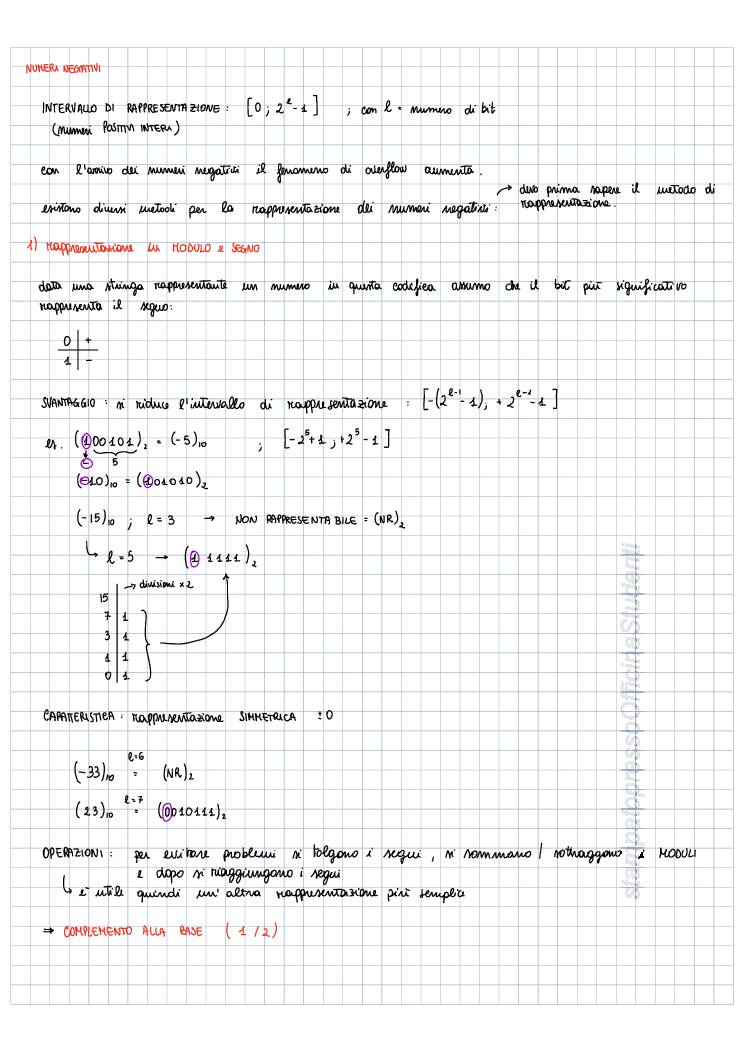 NUMERI NEGATIVI
INTERVALLO DI RAPPRESENTAZIONE : [0 ; 2^l - 1] ; con l = numero di bit
(numeri POSITIVI INTERI)
con l'arrivo dei numeri negativi il fenomeno di overflow aumenta.
esistono diversi metodi per la rappresentazione dei numeri negativi: → devo prima sapere il metodo di
rappresentazione.
1) rappresentazione in MODULO e SEGNO
data una stringa rappresentante un numero in questa codifica assumo che il bit più significativo
rappresenta il segno:
0 | +
1 | -
SVANTAGGIO : si riduce l'intervallo di rappresentazione : [-(2^(l-1) - 1); + 2^(l-1) - 1]
es. (100101)₂ = (-5)₁₀ ; [-2^5+1 ; +2^5-1]
- 5
(-10)₁₀ = (101010)₂
(-15)₁₀ ; l = 3 → NON RAPPRESENTABILE = (NR)₂
l = 5 → (1 1111)₂
→ divisioni x 2
15 |
7 | 1
3 | 1
1 | 1
0 | 1
CARATTERISTICA : rappresentazione SIMMETRICA ±0
l=6
(-33)₁₀ = (NR)₂
l=7
(23)₁₀ = (0010111)₂
OPERAZIONI : per evitare problemi si tolgono i segni, si sommano / sottraggono i MODULI
e dopo si riaggiungono i segni
è utile quindi un'altra rappresentazione più semplice
⇒ COMPLEMENTO ALLA BASE (1 / 2)
stampatoppressoOfficinaStudenti